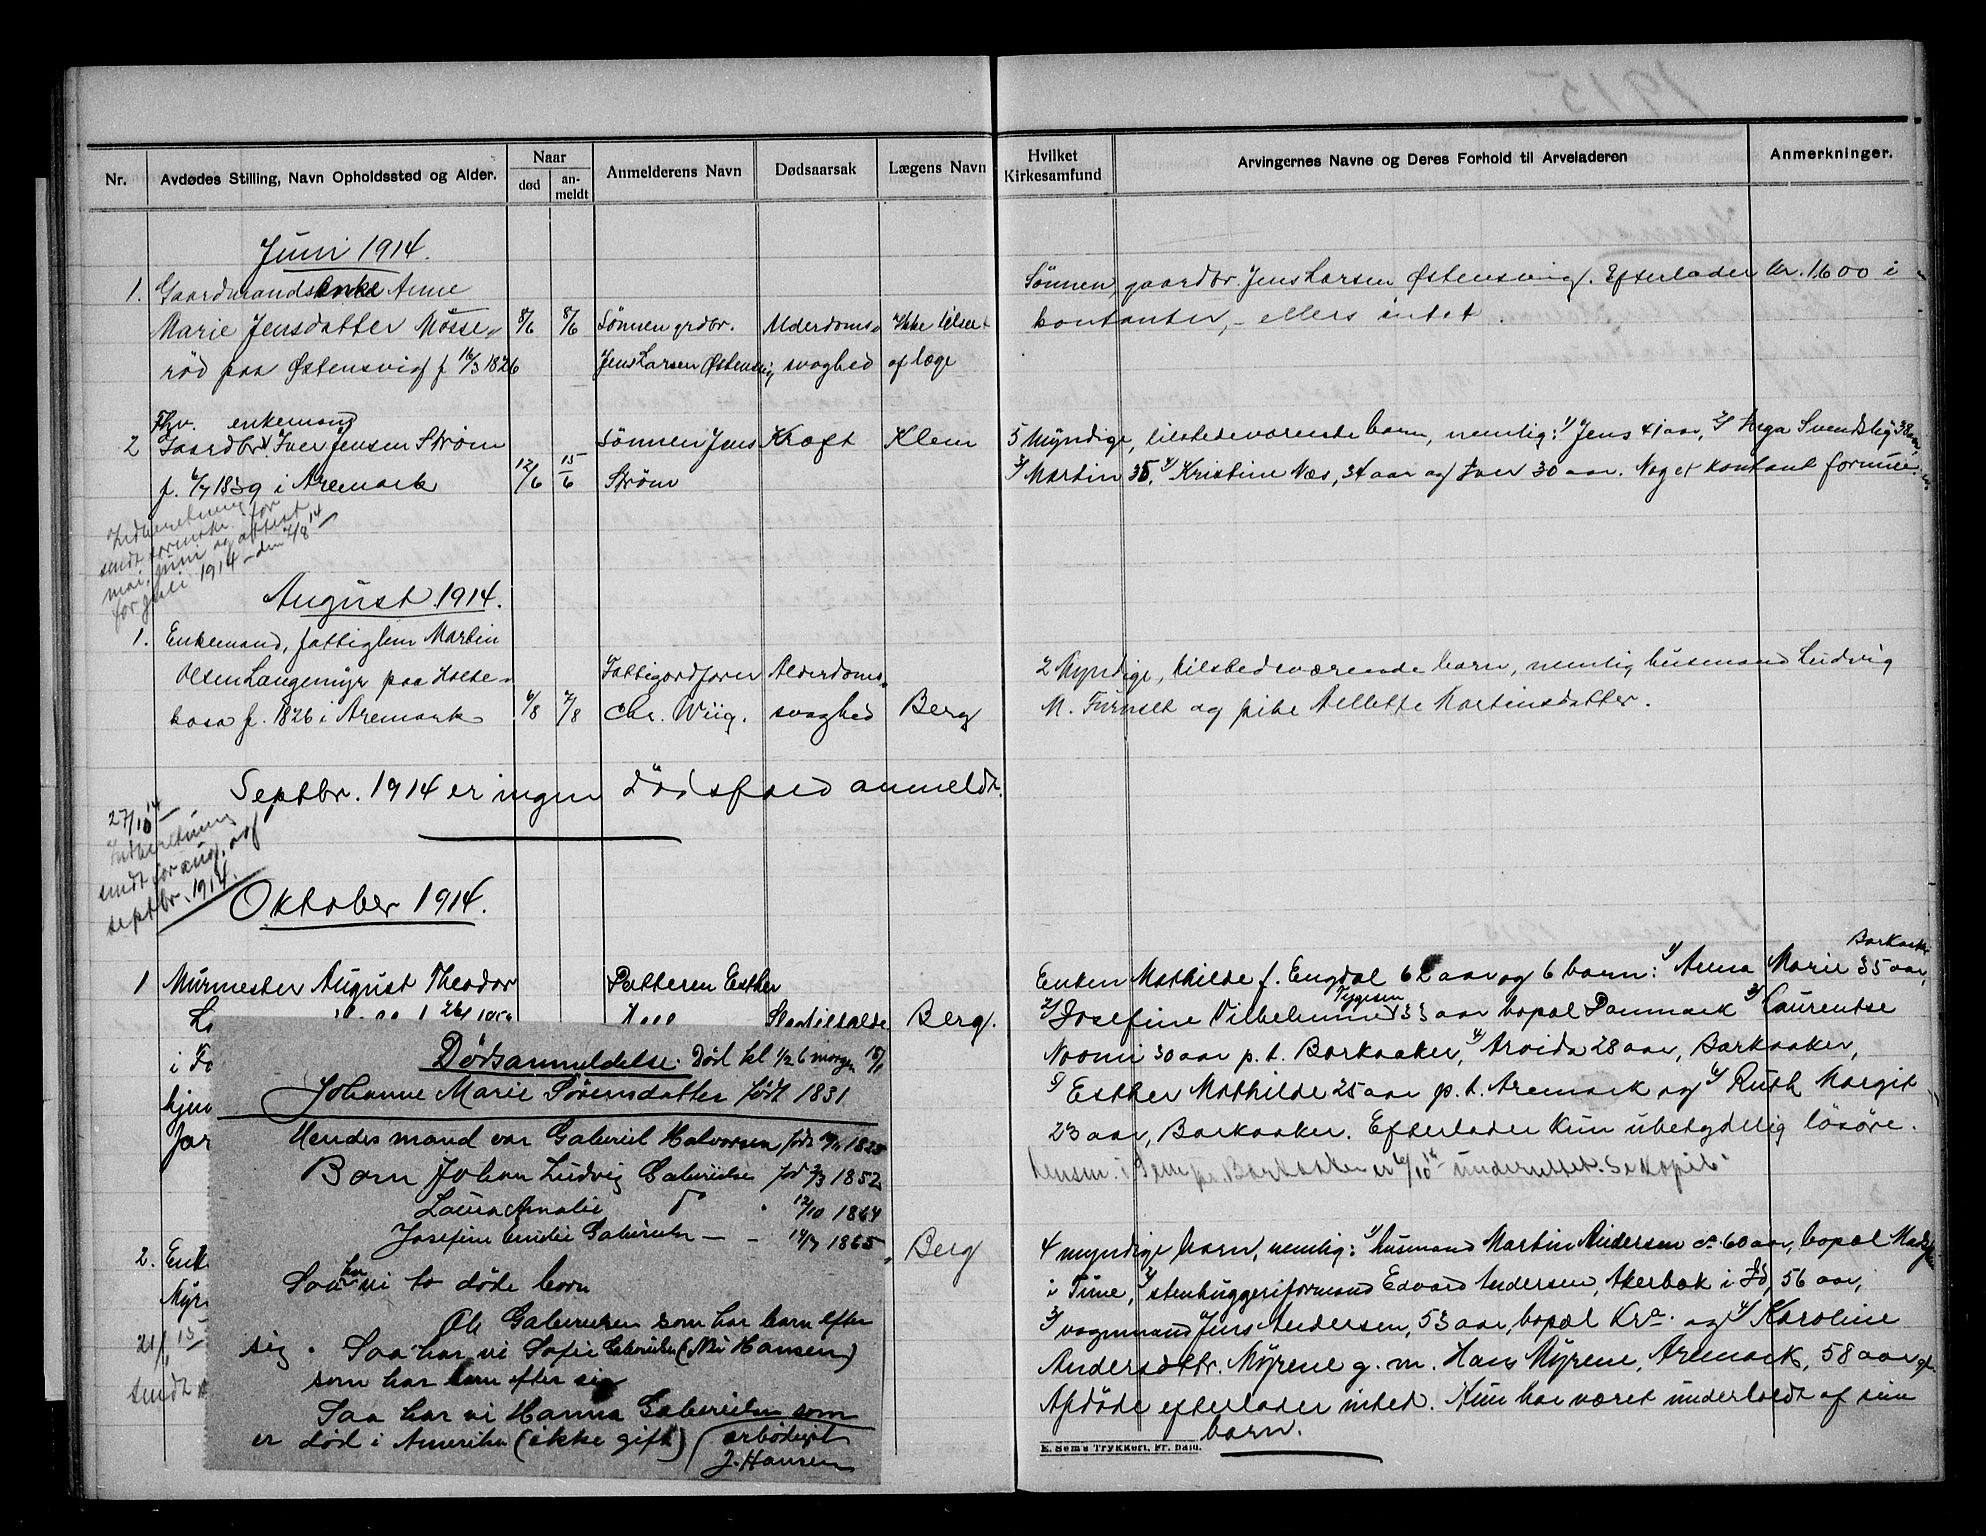 1915.
Nr.
Avdødes Stilling, Navn Opholdssted og Alder.
Naar
død
an-
meldt
Anmelderens Navn
Dødsaarsak
Lægens Navn
Hvilket
Kirkesamfund
Arvingernes Navne og Deres Forhold til Arveladeren
Anmerkninger.
Juni 1914.
1. Gaardmandsenke Anne
Marie Jensdatter Mosse-
rød paa Østensvig f 16/3 1826
8/6 8/6
Sønnen grdbr.
Jens Larsen Østensvig
Alderdoms-
svaghed
Ikke tilseet
af læge
Sønnen, gaardbr. Jens Larsen Østensvig. Efterlader kr. 1600 i
kontanter, - ellers intet.
Fhv. enkemand
2 Gaardbr. Iver Jensen Strøm
f. 4/7 1839 i Aremark
12/6 15/6
Sønnen Jens
Strøm
Kræft
Klein
5 Myndige, tilstedeværende barn, nemlig: 1/ Jens 41 aar, 2/ Inga 38 aar,
3/ Martin 35, 4/ Kristine Næs, 34 aar og Iver 30 aar. Noget kontant formue.
Indberetning
sendt for
mai, juni og attest
for juli 1914 - den 7/8 14
August 1914.
1. Enkemand, fattiglem Martin
Olsen Langemyr paa Holte-
kasa f. 1826 i Aremark
6/8 7/8
Fattigordfører
Chr. Wiig.
Alderdoms-
svaghed
Berg
2 Myndige, tilstedeværende barn, nemlig husmand Ludvig
M. Furuset og pike Nellette Martinsdatter.
Septbr. 1914 er ingen dødsfald anmeldt.
27/10 14
Indberetning
sendt for aug. og
septbr. 1914.
Oktober 1914.
1 Murmester August Theodor
i
hjem
Datteren Esther
Slagtilfælde
Berg.
Enken Mathilde f. Engdal 62 aar og 6 barn: 1/ Anna Marie 35 aar, Barkaaker
2/ Josefine Vilhelmine Tygesen 33 aar bopæl Danmark 3/ Laurentse
Noomi 30 aar p. t. Barkaaker, 4/ Arvida 28 aar, Barkaaker,
5/ Esther Mathilde 25 aar p. t. Aremark og 6/ Ruth Margit
23 aar, Barkaaker. Efterlader kun ubetydelig løsøre.
Lensm. i Sem pr. Barkaaker er 6/10 14 underrettet. Se kopib.
2. Enk
Myr
21/1 15
sendt
Berg
4 myndige barn, nemlig: 1/ husmand Martin Andersen ca 60 aar, bopæl
i Tune, 2/ stenhuggeriformand Edvard Andersen, Akerbæk i Id, 56 aar,
3/ vognmand Jens Andersen, 53 aar, bopæl Kra. og 4/ Karoline
Andersdtr. Myrene g. m. Hans Myrene, Aremark, 58 aar gl.
Afdøde efterlader intet. Hun har været underholdt af sine
barn.
E. Sem's Trykkeri, Fr. hald.
Dødsanmeldelse. Død kl 1/2 6 morgen 15/1
Johanne Marie Sørensdatter født 1831
Hendes mand var Gabriel Halvorsen født 1825
Barn Johan Ludvig Gabrielse fød 2/3 1852
Laura Amalie do " 12/10 1864
Josefine Emilie Gabrielsen - - 14/7 1865
Saa har vi to døde born
Ole Gabrielsen som har barn efter
sig. Saa har vi Sofie Gabrielsen (Nu Hansen)
som har barn efter sig
Saa har vi Hanna Gabrielsen som
er død i Amerika (ikke gift) ærbødigst
J. Hansen